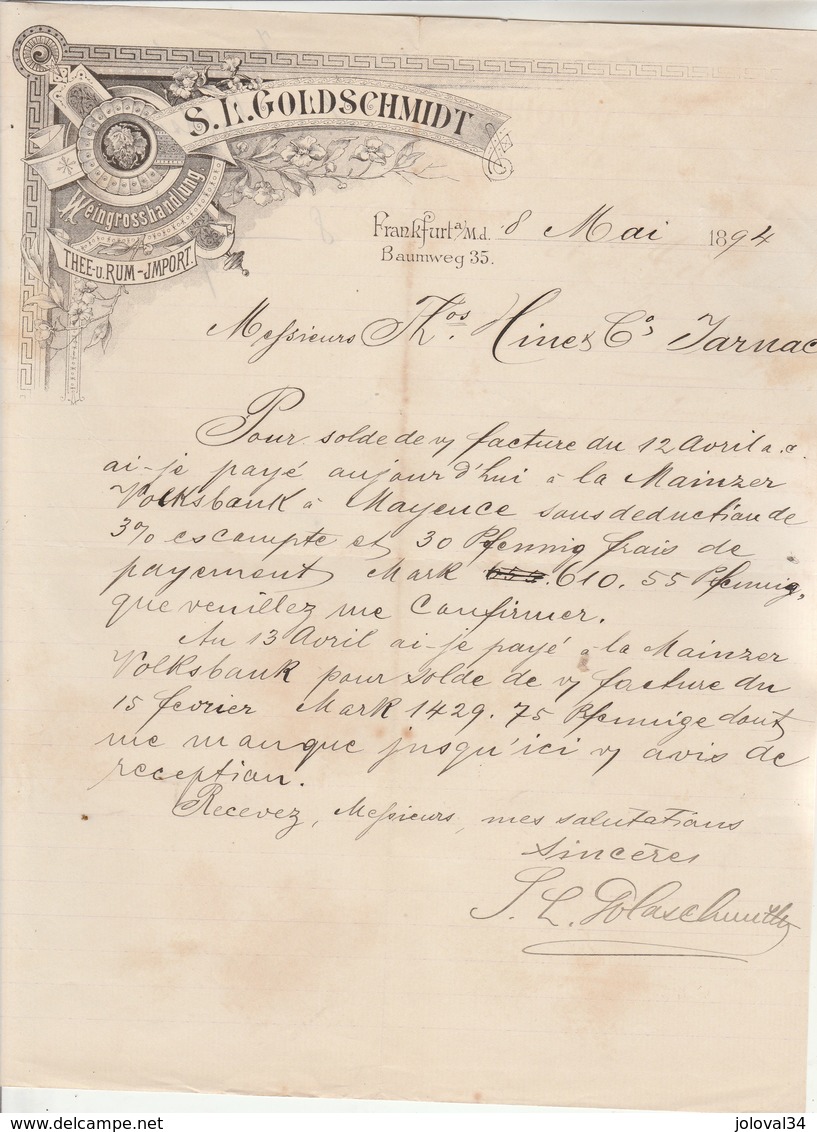 S. L. GOLDSCHMIDT
Weingrosshandlung.
THEE-u. RUM-JMPORT.
Frankfurt a/M. d. 8 Mai 1894
Baumweg 35.
Messieurs Thos. Hine & Co, Jarnac
Pour solde de v/ facture du 12 Avril a. c.
ai-je payé aujourd'hui à la Mainzer
Volksbank à Mayence sous deduction de
3% escompte et 30 Pfennig frais de
payement Mark 655. 610. 55 Pfennig,
que veuillez me confirmer.
Au 13 Avril ai-je payé à la Mainzer
Volksbank pour solde de v/ facture du
15 fevrier Mark 1429. 75 Pfennige dont
me manque jusqu'ici v/ avis de
reception.
Recevez, Messieurs, mes salutations
sincères
S. L. Goldschmidt
delcampe.net
joloval34